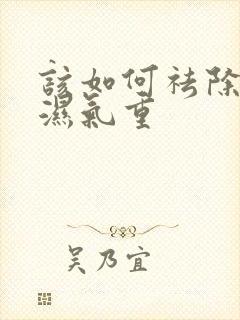 該如何祛除
濕氣重
吳乃宜